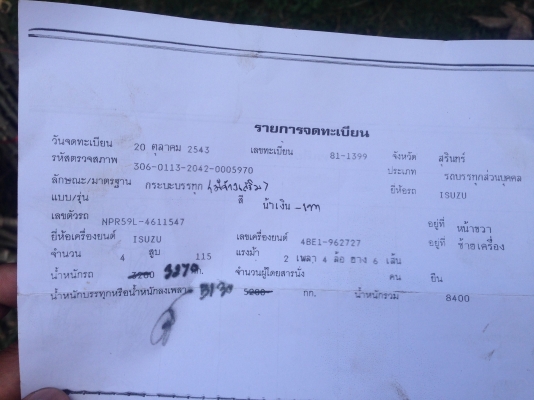 รายการจดทะเบียน
วันจดทะเบียน 20 ตุลาคม 2543 เลขทะเบียน 81-1399 จังหวัด สุรินทร์
รหัสตรวจสภาพ 306-0113-2042-0005970 ประเภท รถบรรทุกส่วนบุคคล
ลักษณะ/มาตรฐาน กระบะบรรทุก ยี่ห้อรถ ISUZU
แบบ/รุ่น สี น้ำเงิน-เทา
เลขตัวรถ NPR59L-4611547 อยู่ที่ หน้าขวา
ยี่ห้อเครื่องยนต์ ISUZU เลขเครื่องยนต์ 4BE1-962727 อยู่ที่ ซ้ายเครื่อง
จำนวน 4 สูบ 115 แรงม้า 2 เพลา 4 ล้อ ยาง 6 เส้น
น้ำหนักรถ 3200 3270 กก. จำนวนผู้โดยสารนั่ง คน ยืน
น้ำหนักบรรทุกหรือน้ำหนักลงเพลา 5130 5200 กก. น้ำหนักรวม 8400